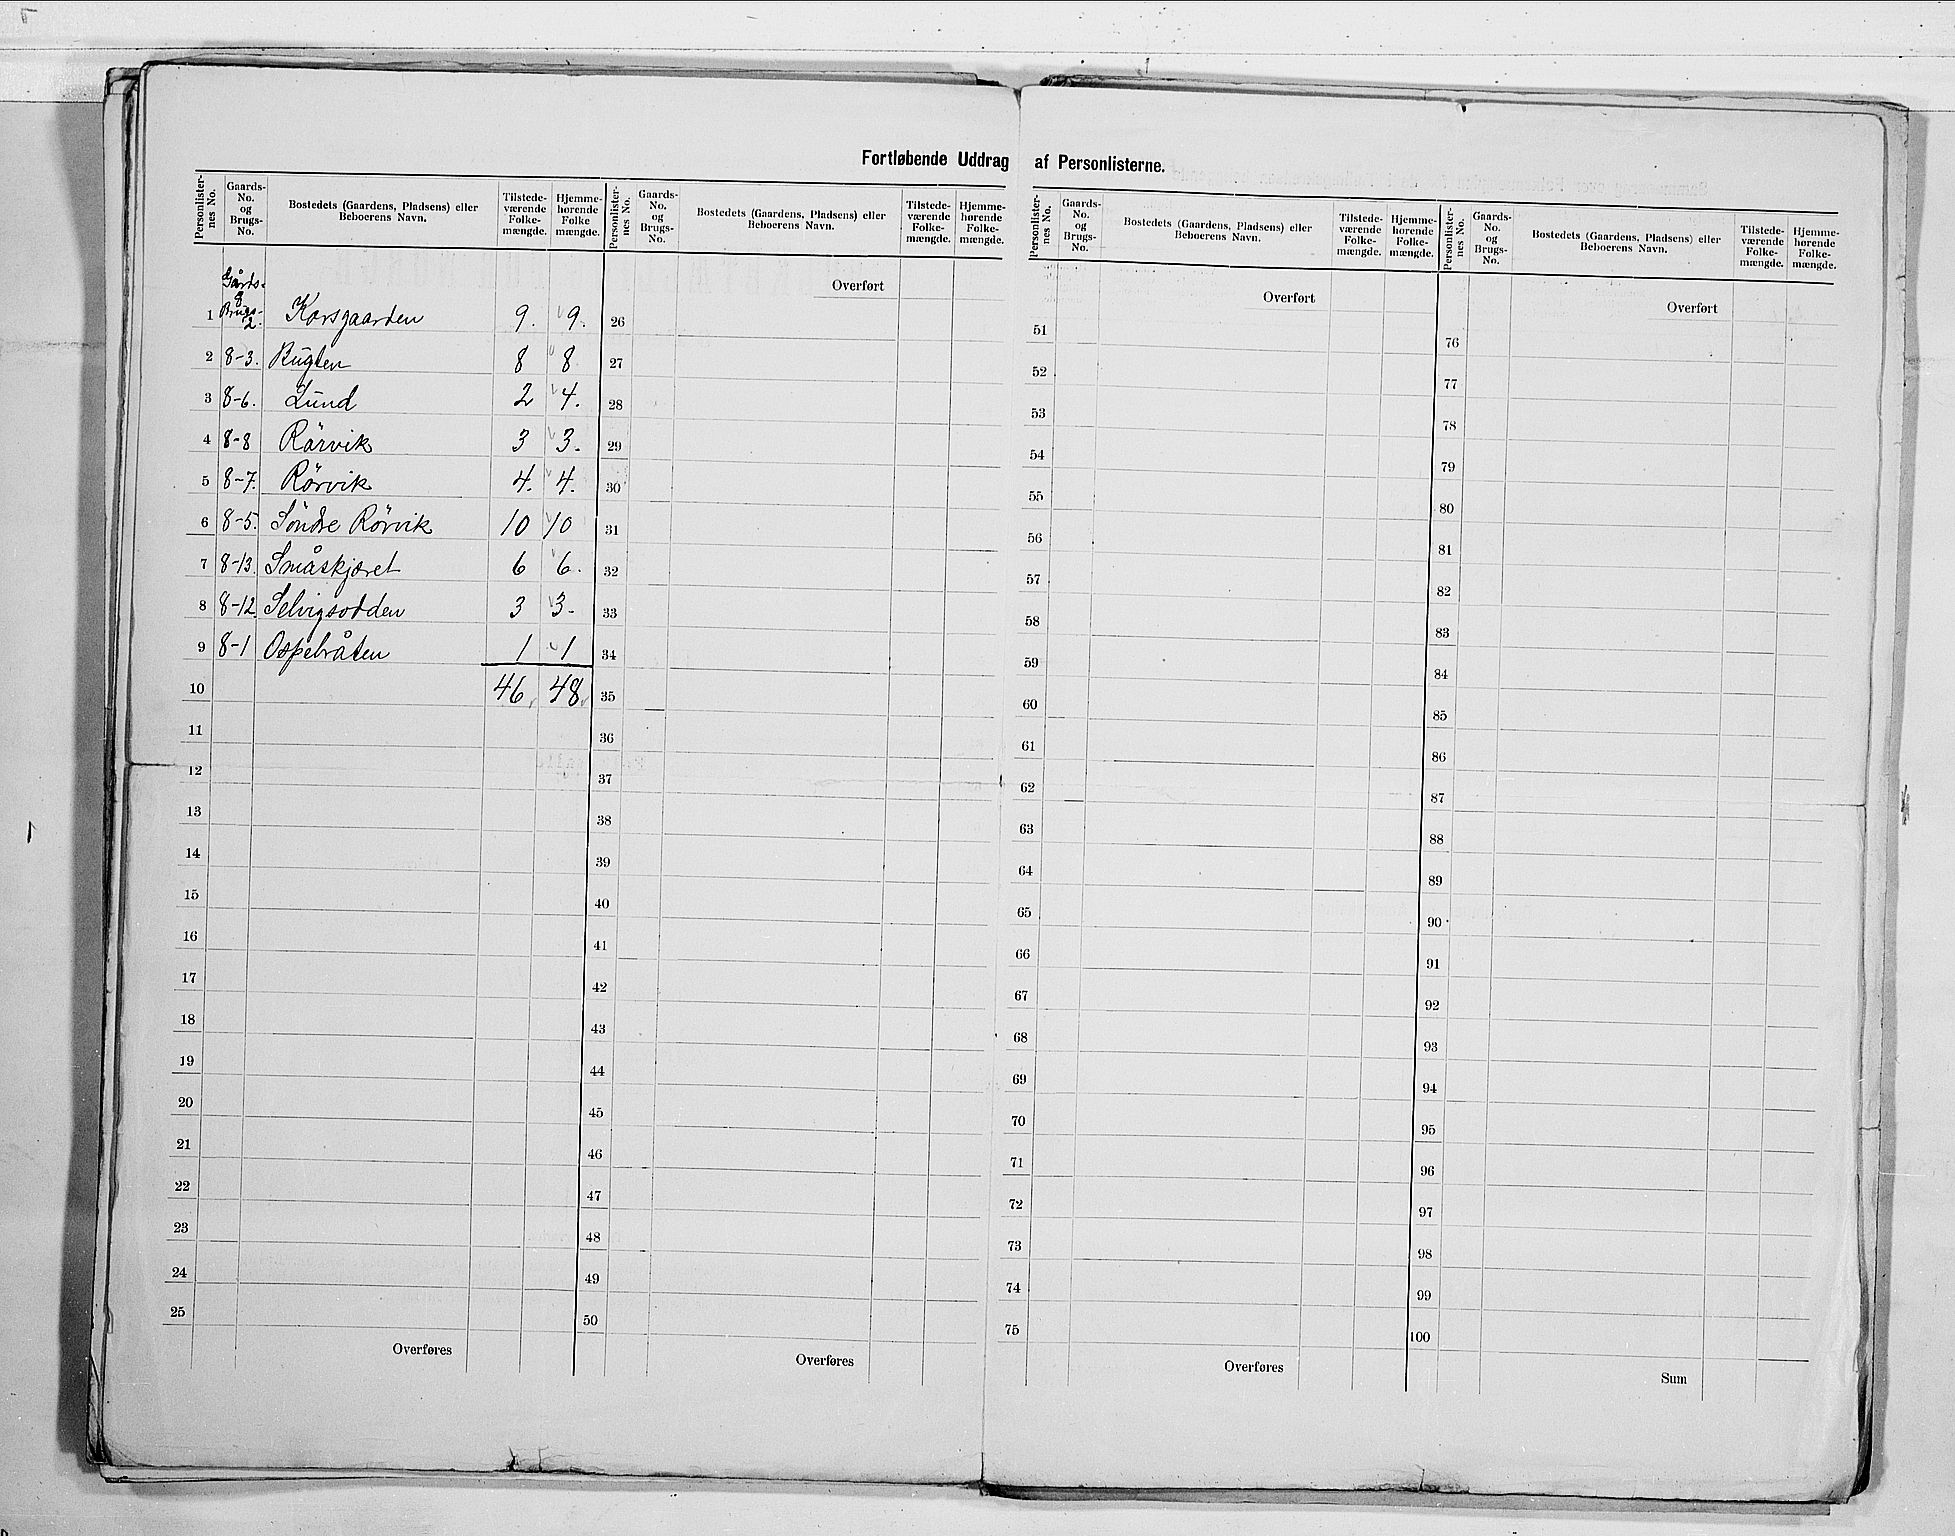 Fortløbende Uddrag af Personlisterne.
Personlister-nes No. | Gaards-No. og Brugs-No. | Bostedets (Gaardens, Pladsens) eller Beboerens Navn. | Tilstede-værende Folke-mængde. | Hjemme-hørende Folke mængde.
Gårds-
8
1 Brugs-2. Korsgaarden 9. 9.
2 8-3. Bugten 8 8
3 8-6. Lund 2 4.
4 8-8 Rörvik 3 3.
5 8-7. Rörvik 4. 4.
6 8-5. Söndre Rörvik 10 10
7 8-13. Småskjæret 6 6.
8 8-12. Selvigsodden 3 3.
9 8-1 Ospebråten 1 1
10 46. 48.
11
12
13
14
15
16
17
18
19
20
21
22
23
24
25
Overføres
Personlister-nes No. | Gaards-No. og Brugs-No. | Bostedets (Gaardens, Pladsens) eller Beboerens Navn. | Tilstede-værende Folke-mængde. | Hjemme-hørende Folke-mængde.
Overført
26
27
28
29
30
31
32
33
34
35
36
37
38
39
40
41
42
43
44
45
46
47
48
49
50
Overføres
Personlister-nes No. | Gaards-No. og Brugs-No. | Bostedets (Gaardens, Pladsens) eller Beboerens Navn. | Tilstede-værende Folke-mængde. | Hjemme-hørende Folke-mængde.
Overført
51
52
53
54
55
56
57
58
59
60
61
62
63
64
65
66
67
68
69
70
71
72
73
74
75
Overføres
Personlister-nes No. | Gaards-No. og Brugs-No. | Bostedets (Gaardens, Pladsens) eller Beboerens Navn. | Tilstede-værende Folke-mængde. | Hjemme-hørende Folke-mængde.
Overført
76
77
78
79
80
81
82
83
84
85
86
87
88
89
90
91
92
93
94
95
96
97
98
99
100
Sum